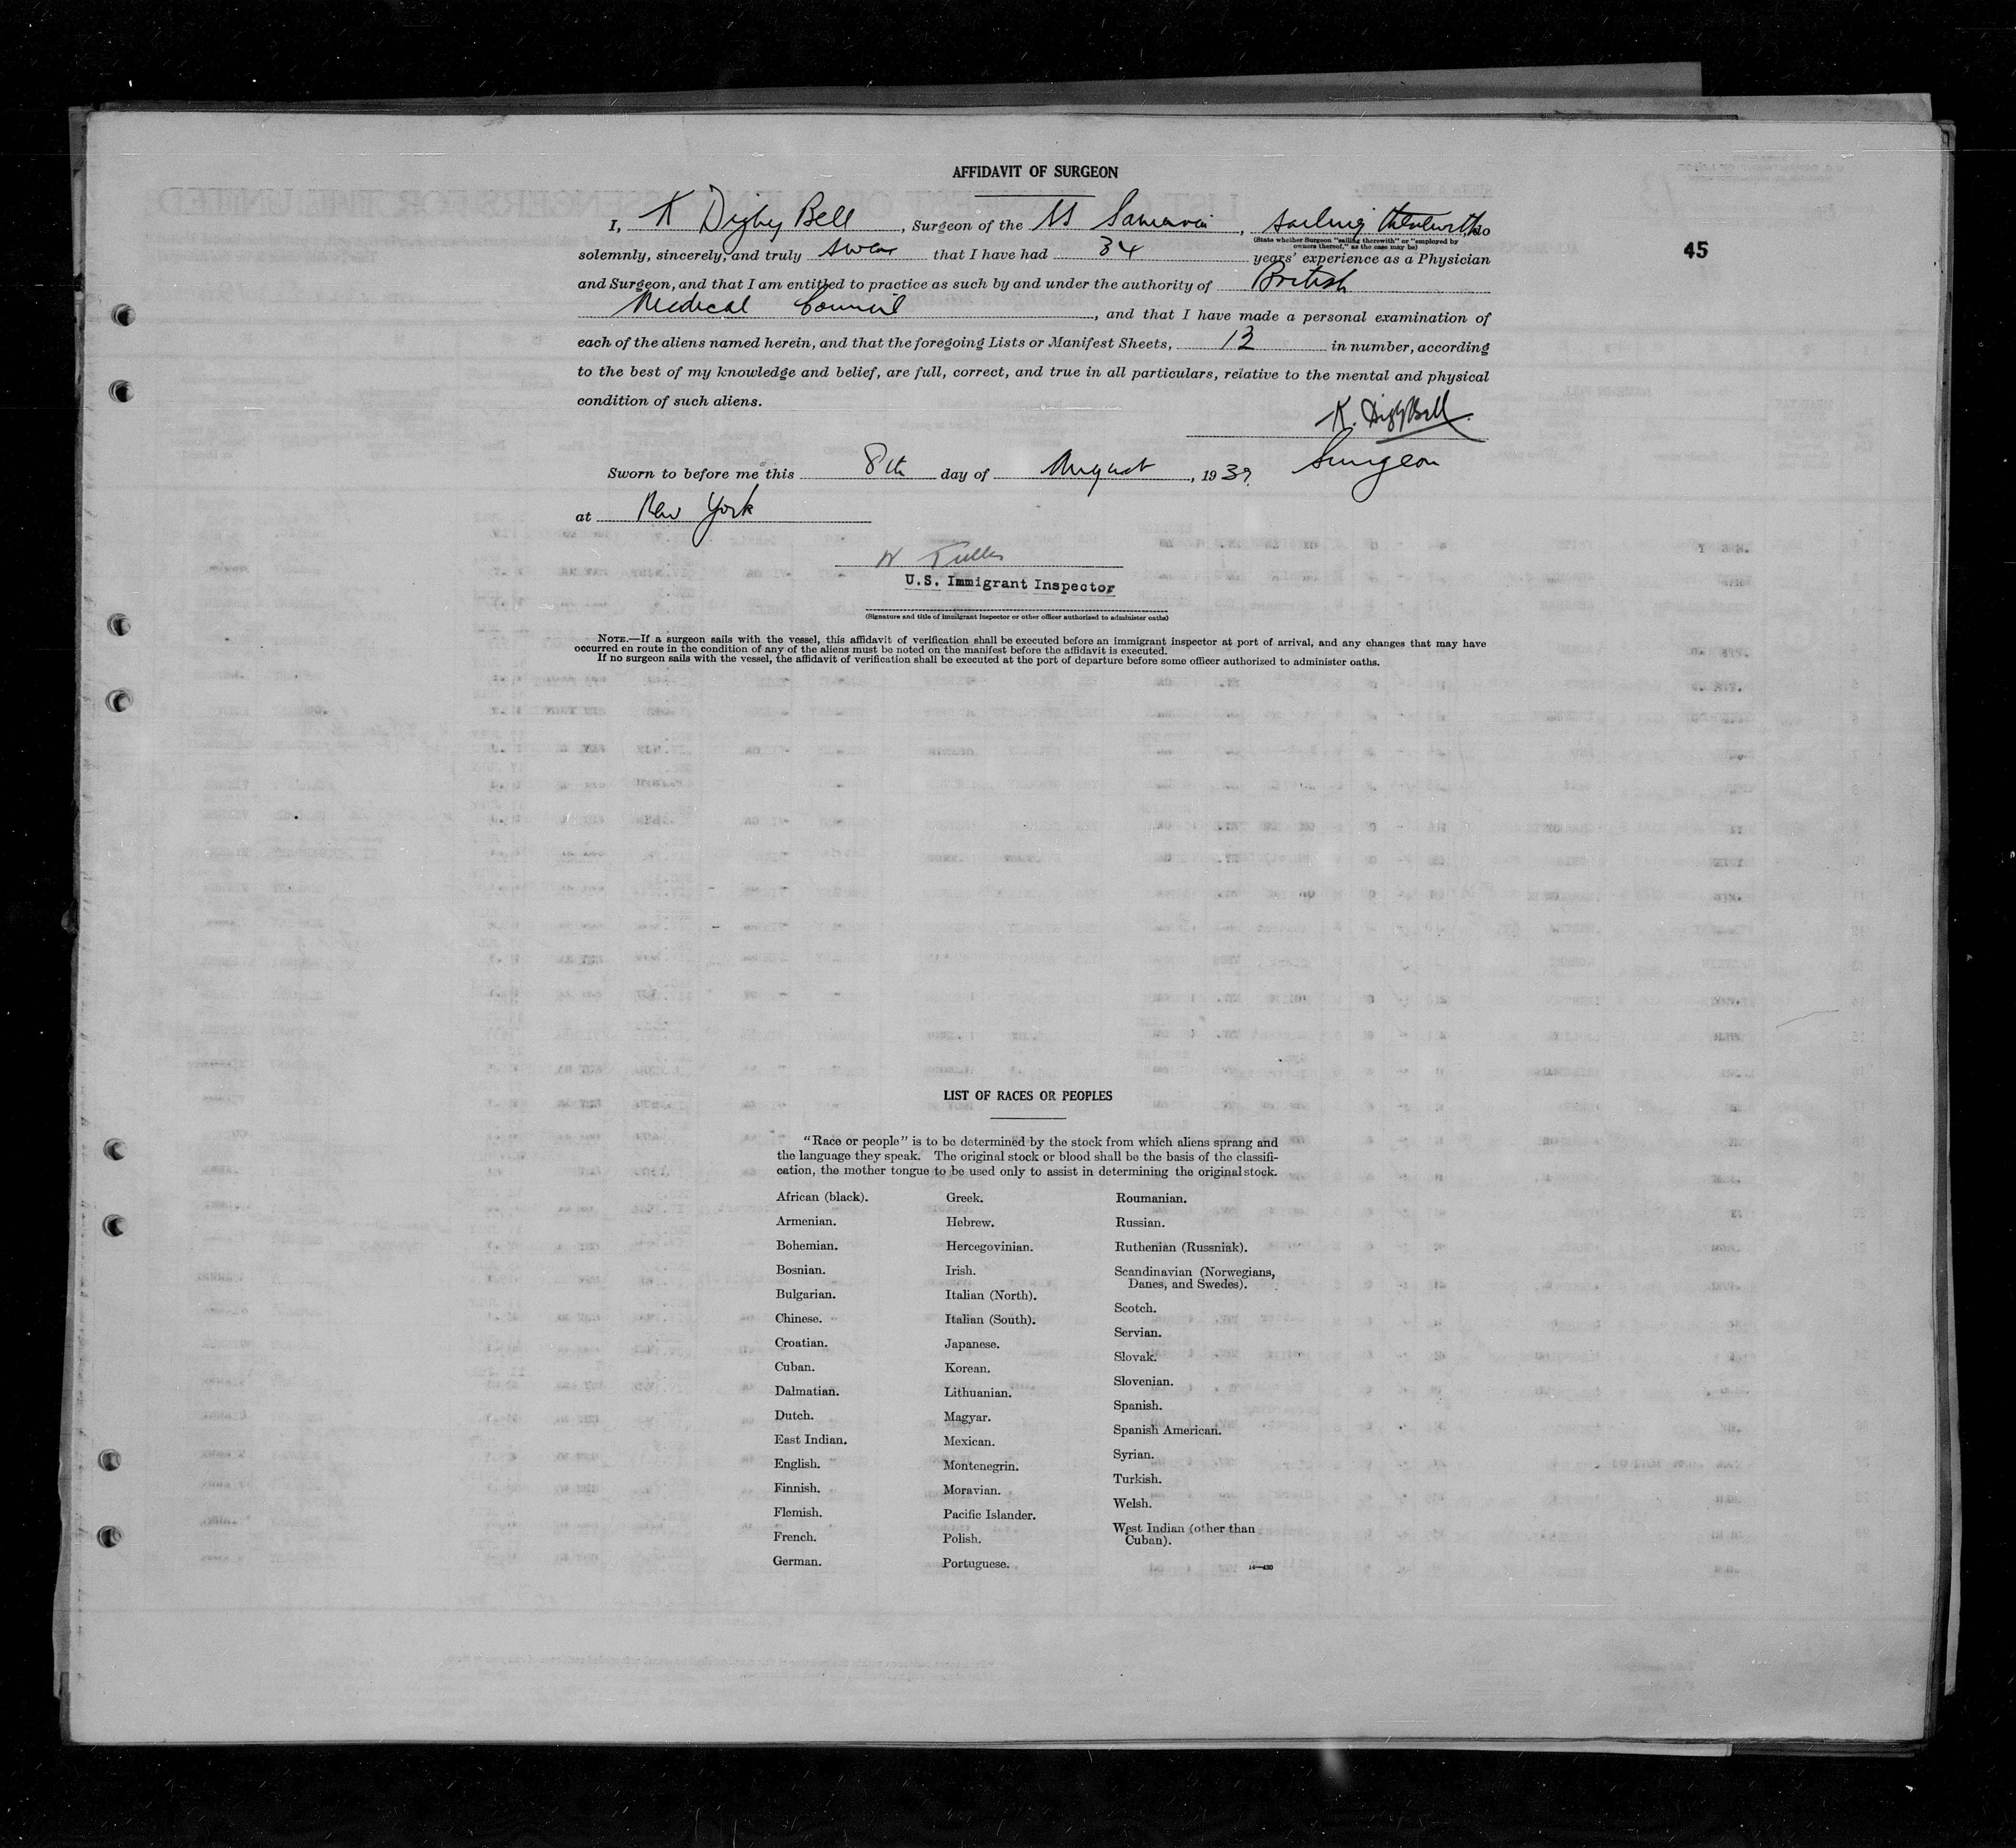 AFFIDAVIT OF SURGEON
I, K Digby Bell, Surgeon of the SS Samaria, sailing therewith, do
(State whether Surgeon "sailing therewith" or "employed by
owners thereof," as the case may be)
45
solemnly, sincerely, and truly swear that I have had 34 years' experience as a Physician
and Surgeon, and that I am entitled to practice as such by and under the authority of British
Medical Council, and that I have made a personal examination of
each of the aliens named herein, and that the foregoing Lists or Manifest Sheets, 13 in number, according
to the best of my knowledge and belief, are full, correct, and true in all particulars, relative to the mental and physical
condition of such aliens.
K. Digby Bell
Surgeon
Sworn to before me this 8th day of August, 1939
at New York
U.S. Immigrant Inspector
(Signature and title of immigrant inspector or other officer authorized to administer oaths)
NOTE.—If a surgeon sails with the vessel, this affidavit of verification shall be executed before an immigrant inspector at port of arrival, and any changes that may have
occurred en route in the condition of any of the aliens must be noted on the manifest before the affidavit is executed.
If no surgeon sails with the vessel, the affidavit of verification shall be executed at the port of departure before some officer authorized to administer oaths.
LIST OF RACES OR PEOPLES
"Race or people" is to be determined by the stock from which aliens sprang and
the language they speak. The original stock or blood shall be the basis of the classifi-
cation, the mother tongue to be used only to assist in determining the original stock.
African (black).
Armenian.
Bohemian.
Bosnian.
Bulgarian.
Chinese.
Croatian.
Cuban.
Dalmatian.
Dutch.
East Indian.
English.
Finnish.
Flemish.
French.
German.
Greek.
Hebrew.
Hercegovinian.
Irish.
Italian (North).
Italian (South).
Japanese.
Korean.
Lithuanian.
Magyar.
Mexican.
Montenegrin.
Moravian.
Pacific Islander.
Polish.
Portuguese.
Roumanian.
Russian.
Ruthenian (Russniak).
Scandinavian (Norwegians,
Danes, and Swedes).
Scotch.
Servian.
Slovak.
Slovenian.
Spanish.
Spanish American.
Syrian.
Turkish.
Welsh.
West Indian (other than
Cuban).
14—430